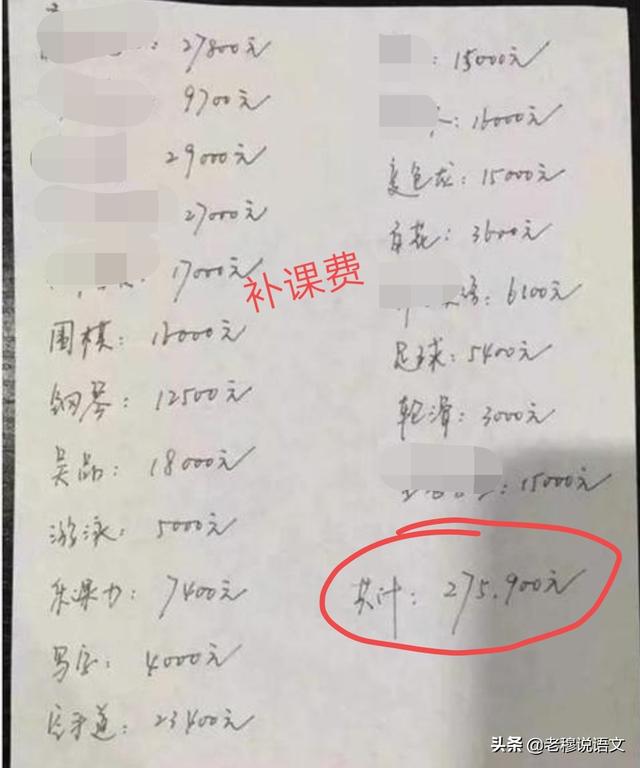 27800元
9700元
29000元
27000元
17000元
补课费
围棋：16000元
钢琴：12500元
18000元
游泳：5000元
7400元
写字：4000元
空手道：23400元
：15000元
：16000元
变色龙：15000元
3600元
：6100元
足球：5400元
轮滑：3000元
：15000元
共计：275.900元
头条 @老穆说语文